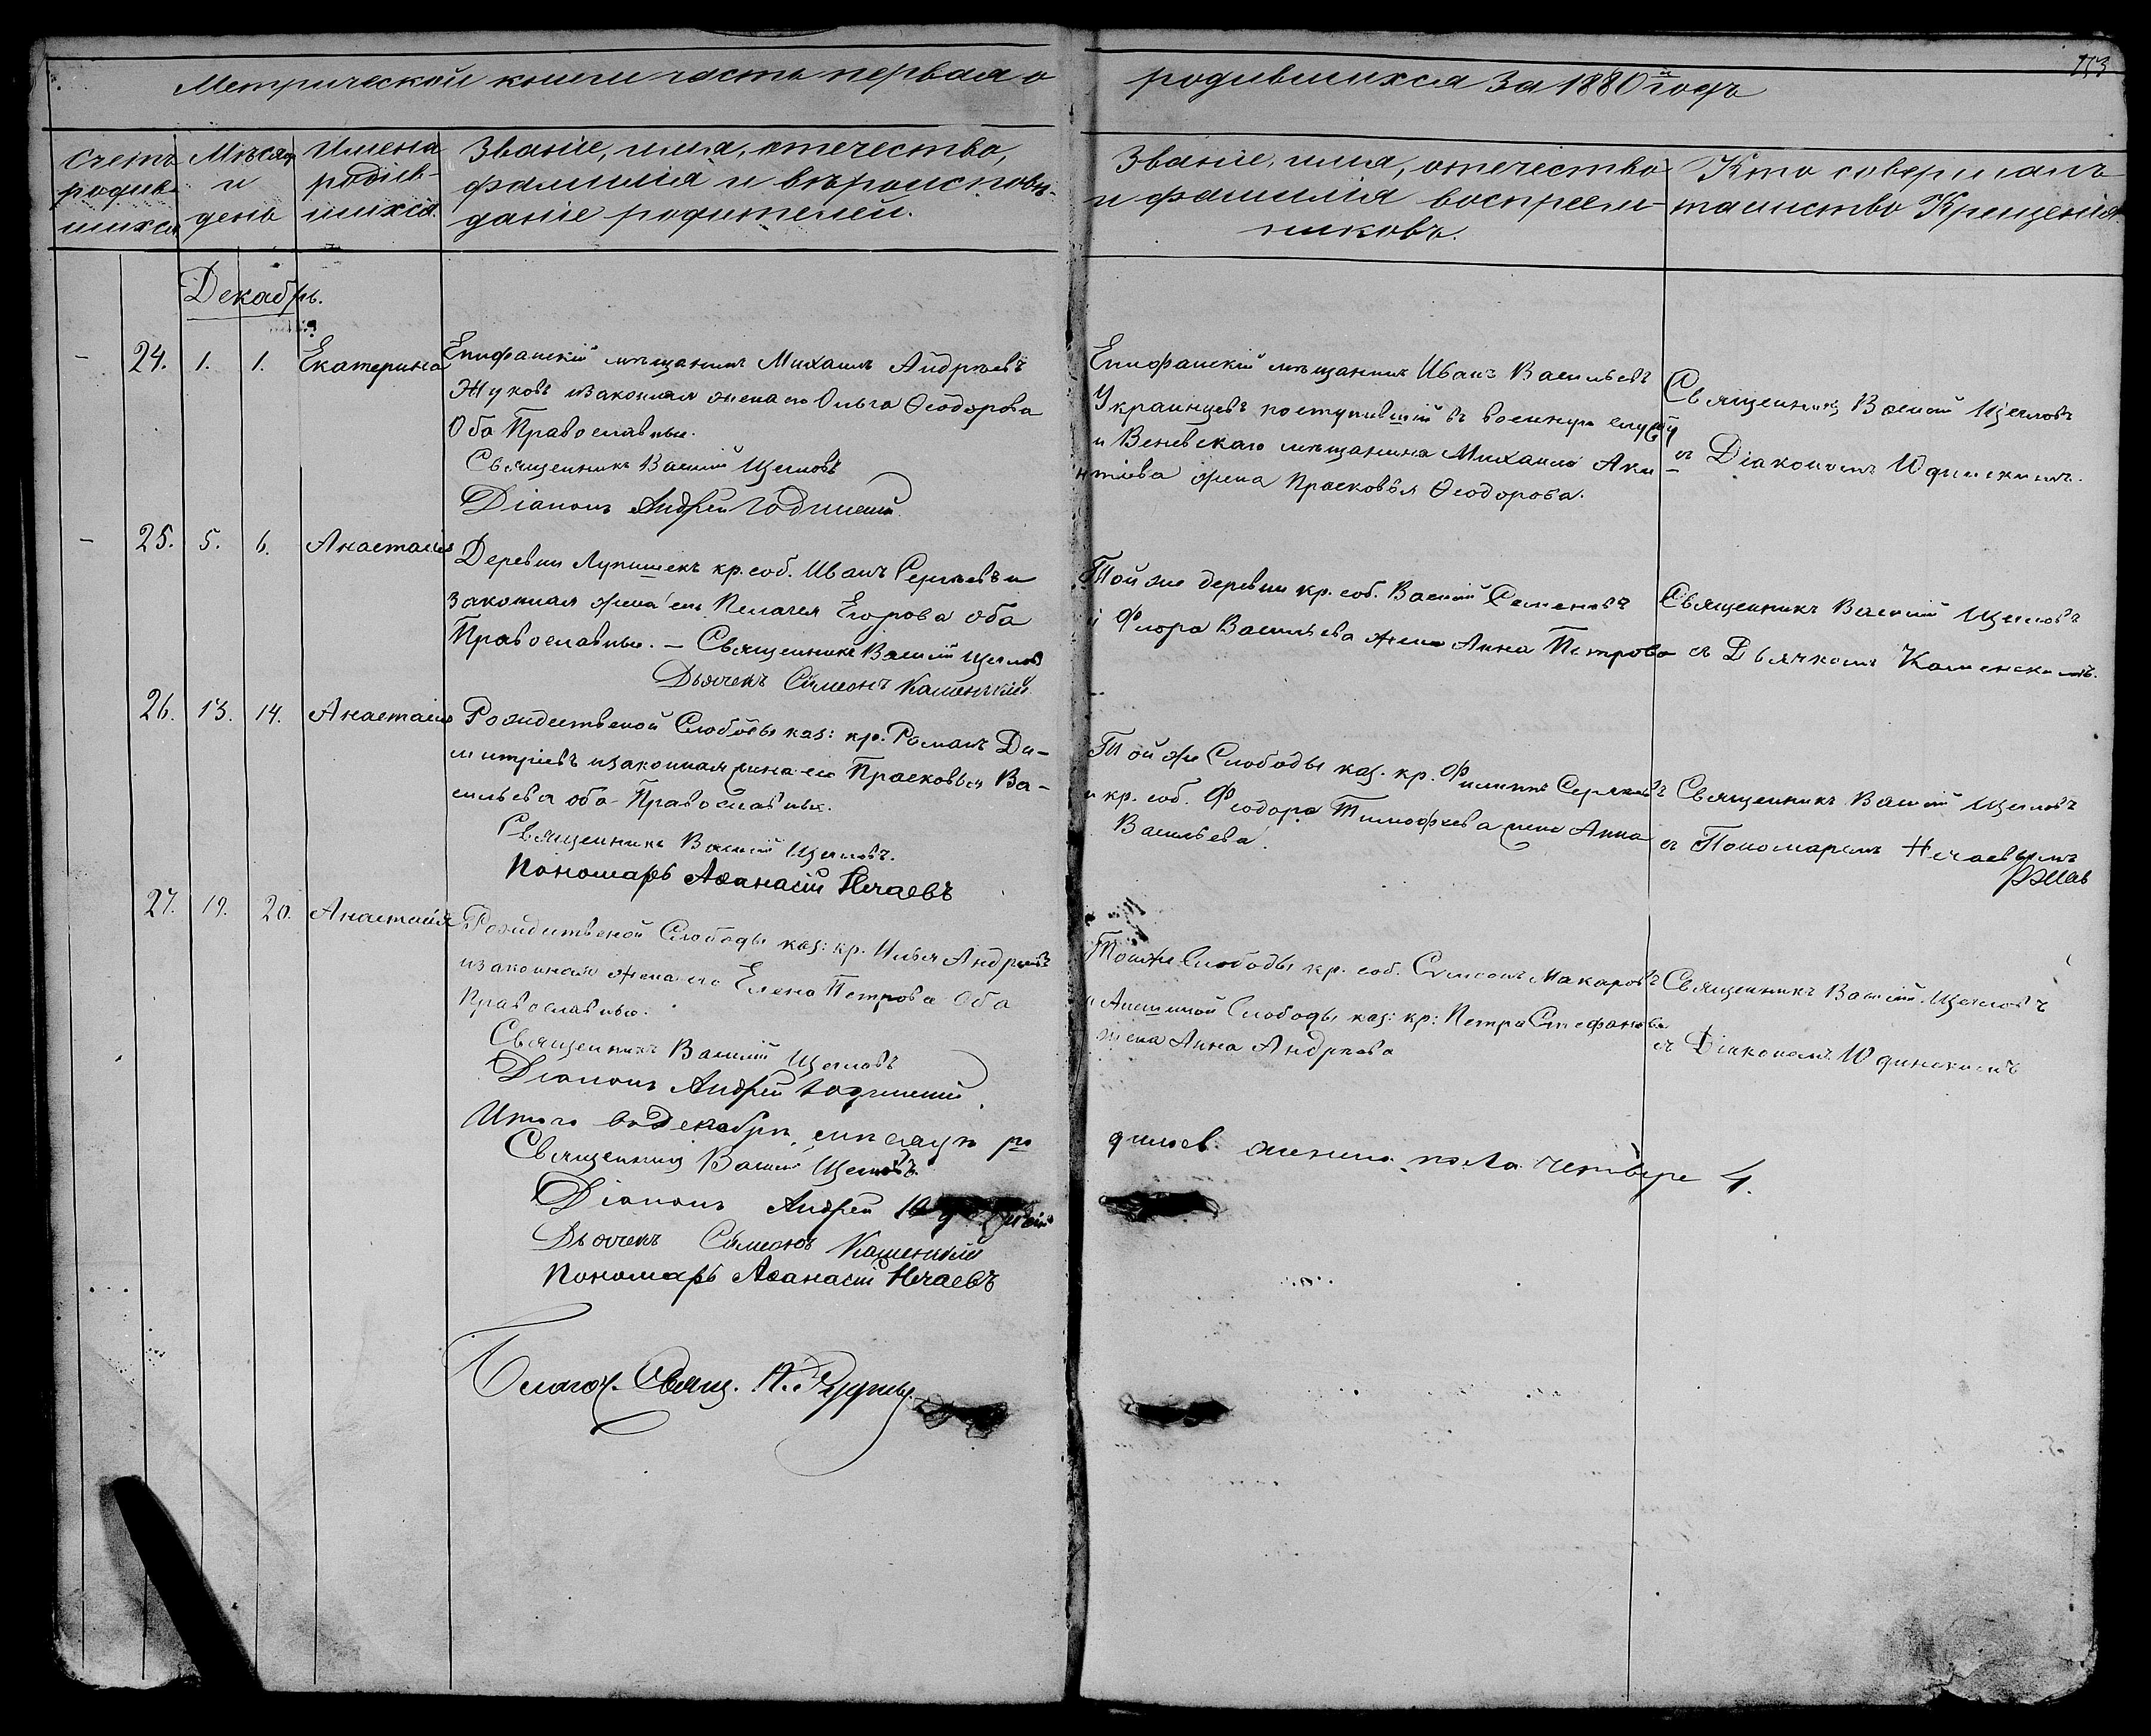 Метрической книги часть первая о
родившихся за 1880 й годъ
113
Счетъ
родив-
шихся
Мѣсяцъ
и
день
Имена
родив-
шихся.
Званіе, имя, отечество,
фамилія и вѣроисповѣ-
даніе родителей.
Званіе, имя, отечество
и фамилія воспреем-
никовъ.
Кто совершалъ
таинство Крещенія.
Декабрь.
- 24. 1. 1. Екатерина
Епифанскій мѣщанинъ Михаилъ Андреевъ
Жуковъ изаконная жена его Ольга Ѳеодорова
Оба Православные.
Священникъ Василій Щегловъ
Діаконъ Андрей Юдинскій
Епифанскій мѣщанинъ Иванъ Васильевъ
Украинцевъ поступившій въ военную службу
и Веневскаго мѣщанина Михаила Аки-
нтіева жена Прасковья Ѳеодорова.
Священникъ Василій Щегловъ
съ Діакономъ Юдинскимъ.
- 25. 5. 6. Анастасія
Деревни Лупишекъ кр. соб. Иванъ Сергѣевъ и
законная жена его Пелагея Егорова оба
Православные. - Священникъ Василій Щегловъ
Дьячекъ Симеонъ Каменскій
Той же деревни кр. соб. Василій Семеновъ
и Флора Васильева жена Анна Петрова
Священникъ Василій Щегловъ
съ Дьячкомъ Каменскимъ.
26. 13. 14. Анастасія
Рождественой Слободы каз: кр. Романъ Ди-
митріевъ изаконная жена его Прасковья Ва-
сильева оба Православные.
Священникъ Василій Щегловъ.
Пономарь Аѳанасій Нечаевъ
Той же Слободы каз. кр. Филиппъ
и кр. соб. Ѳеодора Тимофеева жена Анна
Васильева.
Священникъ Василій Щегловъ
съ Пономаремъ Нечаевымъ
27. 19. 20. Анастасія
Рождественой Слободы каз: кр. Илья Андреевъ
изаконная жена его Елена Петрова Оба
Православные.
Священникъ Василій Щегловъ
Діаконъ Андрей Юдинскій
Тойже Слободы кр. соб. Симеонъ Макаровъ
и Слободы каз: кр: Петра Стефанова
жена Анна Андреева
Священникъ Василій Щегловъ
съ Діакономъ Юдинскимъ
Итого въ Декабрѣ мѣсяцѣ ро
дилось женска пола четыре 4.
Священникъ Василій Щегловъ.
Діаконъ Андрей Юдинскій
Дьячекъ Симеонъ Каменскій
Пономарь Аѳанасій Нечаевъ
Благоч. Свящ.